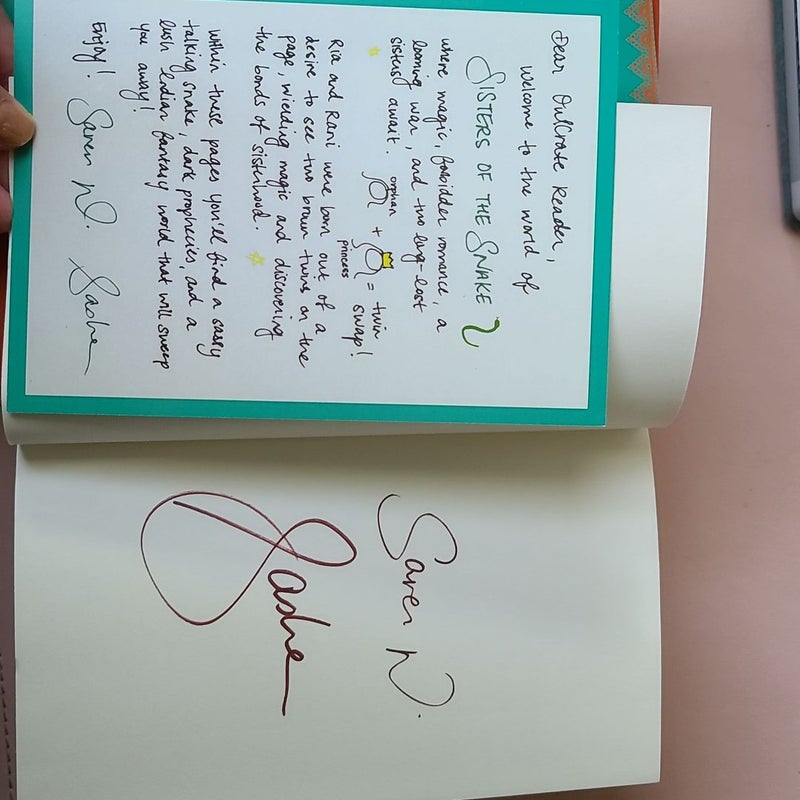 Dear OwlCrate Reader,
Welcome to the world of
SISTERS OF THE SNAKE
where magic, forbidden romance, a
looming war, and two long-lost
sisters await.
orphan + princess = twin
swap!
Ria and Rani were born out of a
desire to see two brown twins on the
page, wielding magic and discovering
the bonds of sisterhood.
Within these pages you'll find a sassy
talking snake, dark prophecies, and a
lush Indian fantasy world that will sweep
you away!
Enjoy! Saren N. Sasha
Saren N.
Sasha